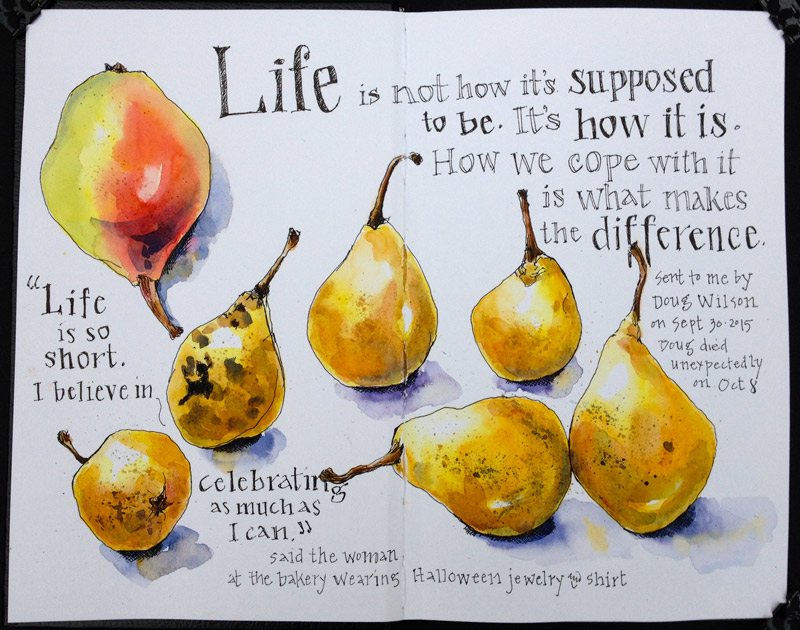 Life is not how it's supposed
to be. It's how it is.
How we cope with it
is what makes
the difference.
sent to me by
Doug Wilson
on Sept 30·2015
Doug died
unexpectedly
on Oct 8
"Life
is so
short.
I believe in
celebrating
as much as
I can,"
said the woman
at the bakery wearing Halloween jewelry and shirt